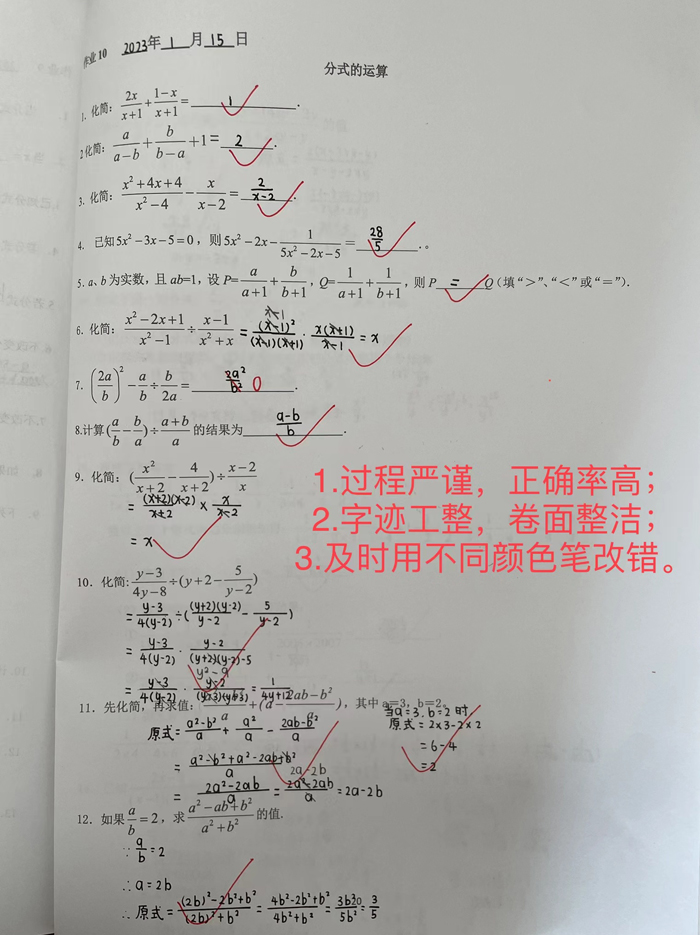 作业10 2023年 1 月 15 日
分式的运算
1. 化简：2x/(x+1) + (1-x)/(x+1) = 1 .
2 化简：a/(a-b) + b/(b-a) + 1 = 2 .
3. 化简：(x²+4x+4)/(x²-4) - x/(x-2) = 2/(x-2) .
4. 已知5x²-3x-5=0，则5x²-2x- 1/(5x²-2x-5) = 28/5 .。
5. a、b为实数，且 ab=1，设 P= a/(a+1) + b/(b+1)，Q= 1/(a+1) + 1/(b+1)，则 P = Q（填“>”、“<”或“=”）.
6. 化简：(x²-2x+1)/(x²-1) ÷ (x-1)/(x²+x) = (x-1)²/((x-1)(x+1)) · x(x+1)/(x-1) = x
x-1
7. (2a/b)² - a/b ÷ b/2a = 2a²/b² 0 .
8.计算(a/b - b/a) ÷ (a+b)/a 的结果为 (a-b)/b .
9. 化简：(x²/(x+2) - 4/(x+2)) ÷ (x-2)/x
= (x+2)(x-2)/(x+2) × x/(x-2)
= x
1.过程严谨，正确率高；
2.字迹工整，卷面整洁；
3.及时用不同颜色笔改错。
10. 化简: (y-3)/(4y-8) ÷ (y+2- 5/(y-2))
= (y-3)/(4(y-2)) ÷ ((y+2)(y-2)/(y-2) - 5/(y-2))
= (y-3)/(4(y-2)) · (y-2)/((y+2)(y-2)-5)
y²-9
= (y-3)/(4(y-2)) · (y-2)/((y-3)(y+3)) = 1/(4y+12)
11. 先化简，再求值：/a + (a - (2ab-b²)/a)，其中 a=3，b=2。
原式= (a²-b²)/a + a²/a - (2ab-b²)/a
= (a²-b²+a²-2ab+b²)/a
2a-2b
= (2a²-2ab)/a = (2a²-2ab)/a = 2a-2b
当a=3，b=2时
原式=2×3-2×2
=6-4
=2
12. 如果 a/b = 2，求 (a²-ab+b²)/(a²+b²) 的值.
∵ a/b = 2
∴ a=2b
∴ 原式= ((2b)²-2b²+b²)/((2b)²+b²) = (4b²-2b²+b²)/(4b²+b²) = 3b²/5b² = 3/5